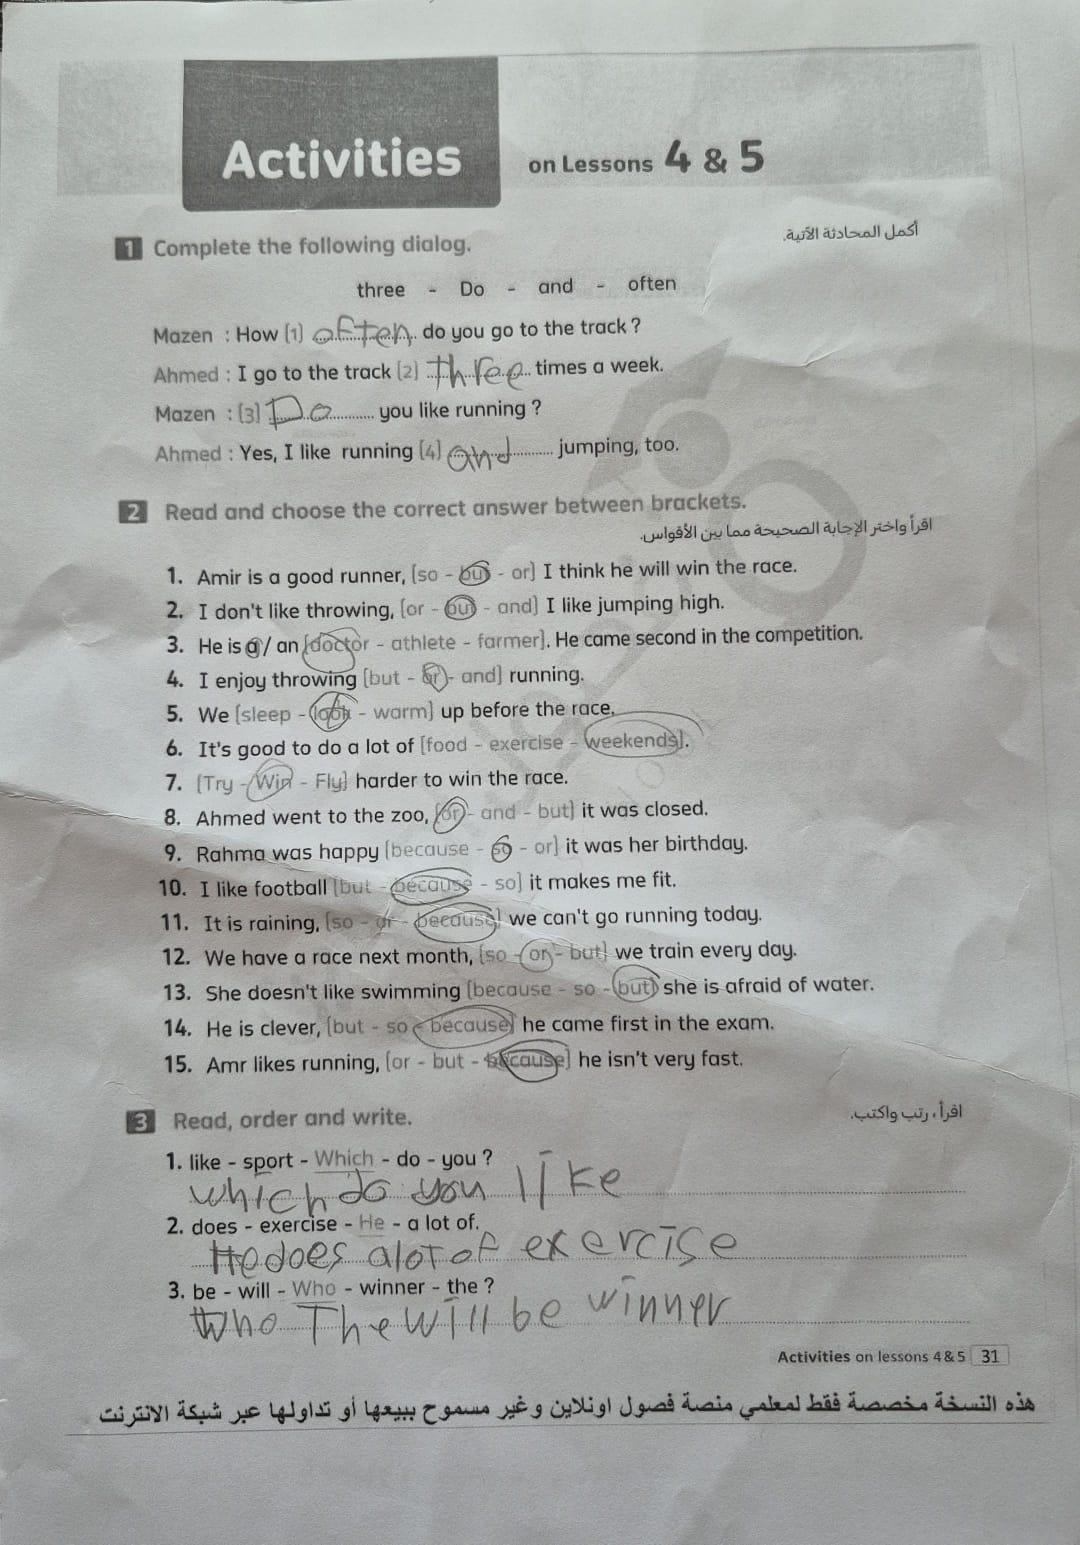 Activities on Lessons 4 & 5
1 Complete the following dialog. أكمل المحادثة الآتية.
three - Do - and - often
Mazen : How (1) often do you go to the track ?
Ahmed : I go to the track (2) three times a week.
Mazen : (3) Do you like running ?
Ahmed : Yes, I like running (4) and jumping, too.
2 Read and choose the correct answer between brackets.
اقرأ واختر الإجابة الصحيحة مما بين الأقواس.
1. Amir is a good runner, (so - but - or) I think he will win the race.
2. I don't like throwing, (or - but - and) I like jumping high.
3. He is a / an (doctor - athlete - farmer). He came second in the competition.
4. I enjoy throwing (but - or - and) running.
5. We (sleep - look - warm) up before the race.
6. It's good to do a lot of (food - exercise - weekends).
7. (Try - Win - Fly) harder to win the race.
8. Ahmed went to the zoo, (or - and - but) it was closed.
9. Rahma was happy (because - so - or) it was her birthday.
10. I like football (but - because - so) it makes me fit.
11. It is raining, (so - or - because) we can't go running today.
12. We have a race next month, (so - or - but) we train every day.
13. She doesn't like swimming (because - so - but) she is afraid of water.
14. He is clever, (but - so - because) he came first in the exam.
15. Amr likes running, (or - but - because) he isn't very fast.
3 Read, order and write. اقرأ، رتب واكتب.
1. like - sport - Which - do - you ?
which do you like
2. does - exercise - He - a lot of.
He does a lot of exercise
3. be - will - Who - winner - the ?
Who The will be winner
Activities on lessons 4 & 5 31
هذه النسخة مخصصة فقط لمعلمي منصة فصول اونلاين و غير مسموح ببيعها أو تداولها عبر شبكة الانترنت